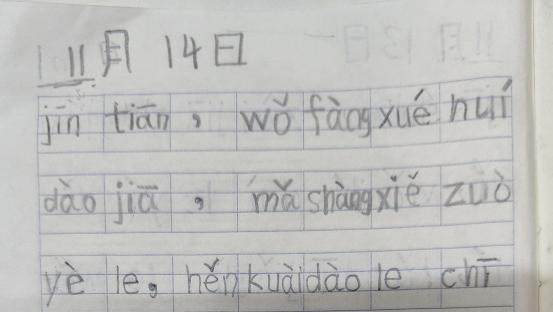 11月 14日
jīn tiān， wǒ fàng xué huí
dào jiā， mǎ shàng xiě zuò
yè le。hěn kuài dào le chī